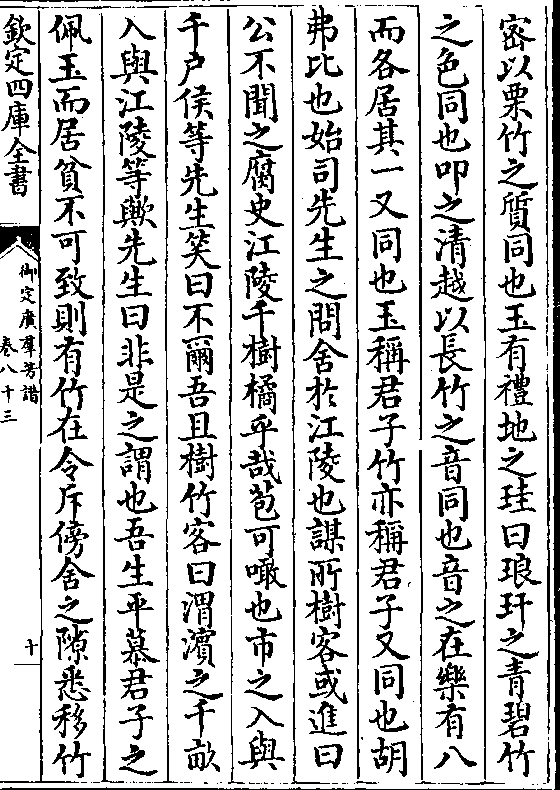 密以栗竹之質同也玉有禮地之珪曰琅玕之青碧竹
之色同也叩之清越以長竹之音同也音之在樂有八
而各居其一又同也玉稱君子竹亦稱君子又同也胡
弗比也始司先生之問舍於江陵也謀所樹客或進曰
公不聞之腐史江陵千樹橘乎哉苞可噉也市之入與
千戶侯等先生笑曰不爾吾且樹竹客曰渭濱之千畝
入與江陵等歟先生曰非是之謂也吾生平慕君子之
佩玉而居貧不可致則有竹在令斥傍舍之隙悉移竹
欽定四庫全書
御定廣羣芳譜
卷八十三
十